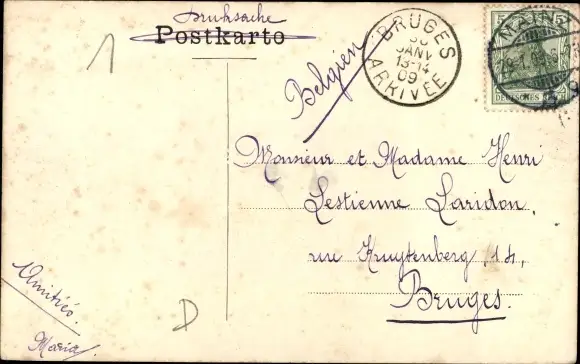 Drucksache
Postkarto
1
Belgien
BRUGES
30
JANV
13-14
09
ARRIVÉE
MAINZ
5
DEUTSCHES REICH
Monsieur et Madame Henri
Lestienne Laridon,
rue Kruytenberg, 14,
Bruges.
Amitiés.
Maria.
D